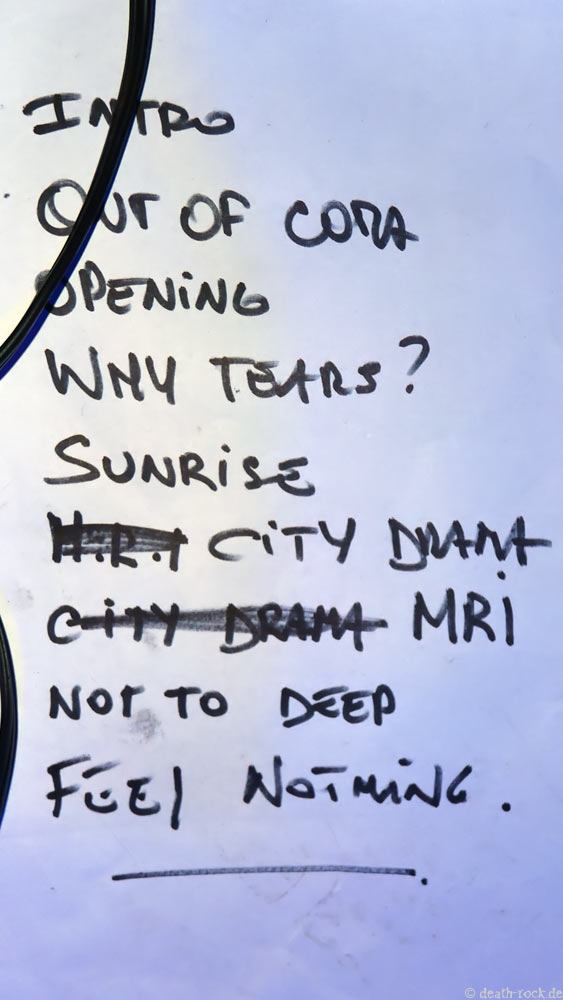 INTRO
OUT OF COMA
OPENING
WHY TEARS?
SUNRISE
M.R.I CITY DRAMA
CITY DRAMA MRI
NOT TO DEEP
FEEL NOTHING.
© death-rock.de